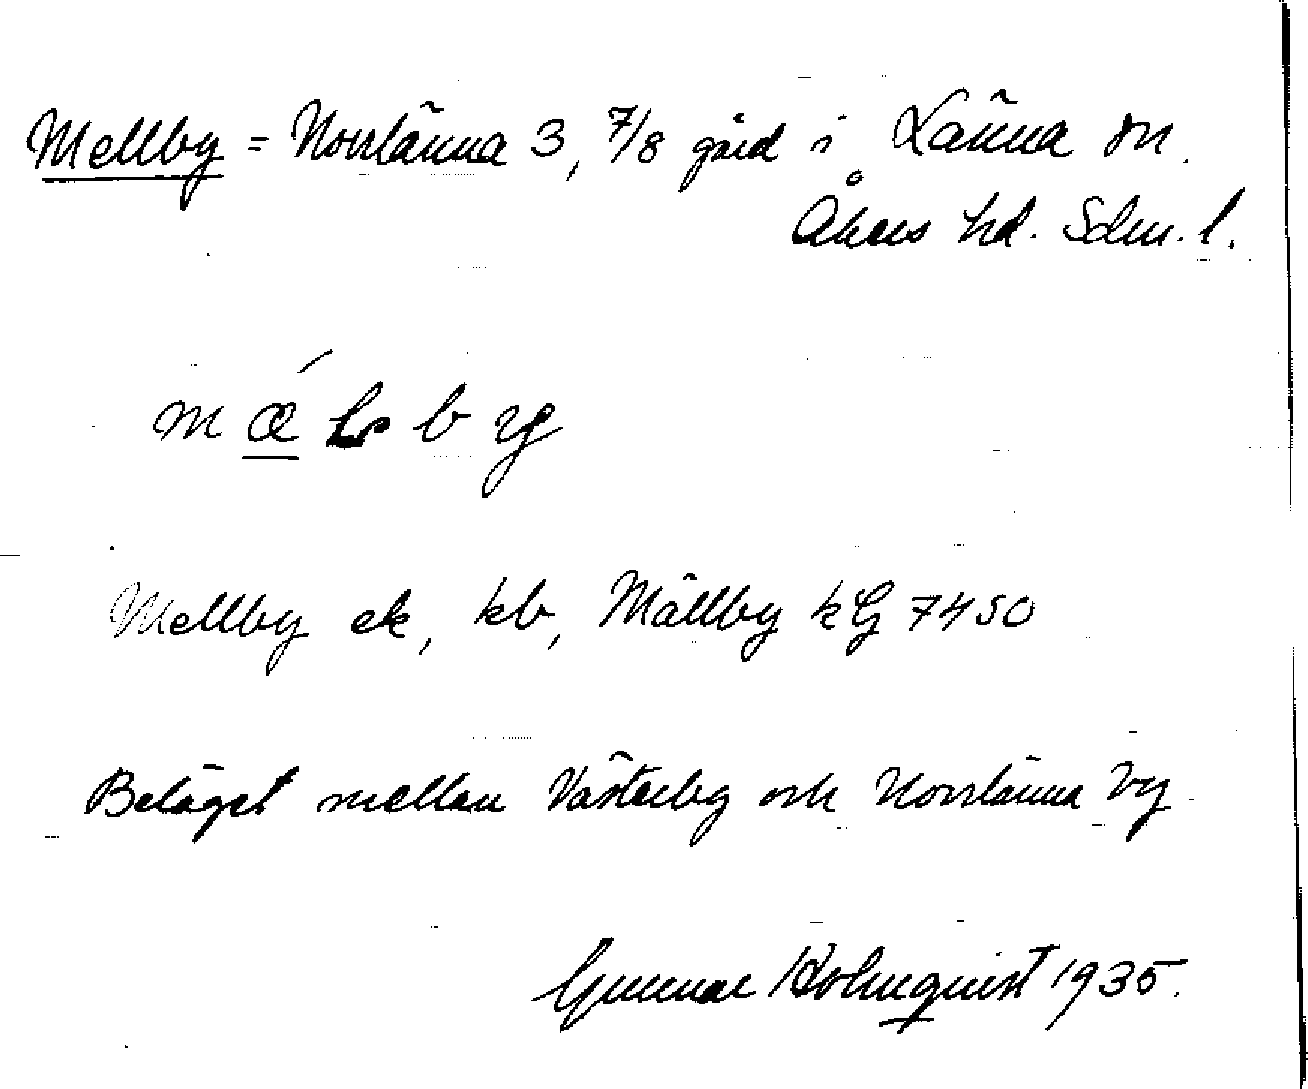 Mellby = Norrlänna 3, 7/8 gård i Länna sn.
Åkers hd. Sdm. l.
Mellby ek, kb, Mällby kG 7450
Beläget mellan Västerby och Norrlänna by
Gunnar Holmquist 1935.